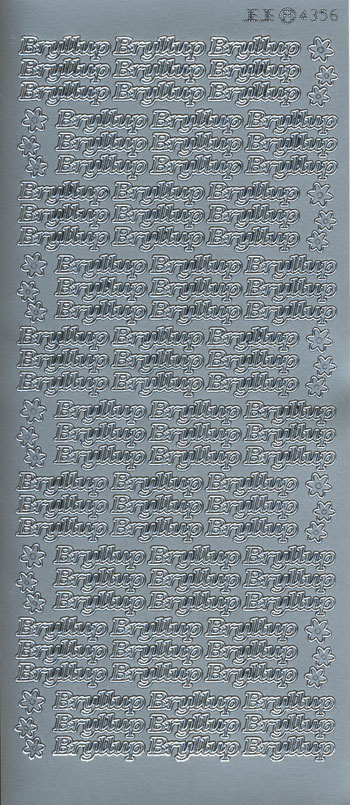 4356
Bryllup Bryllup Bryllup
Bryllup Bryllup Bryllup
Bryllup Bryllup Bryllup
Bryllup Bryllup Bryllup
Bryllup Bryllup Bryllup
Bryllup Bryllup Bryllup
Bryllup Bryllup Bryllup
Bryllup Bryllup Bryllup
Bryllup Bryllup Bryllup
Bryllup Bryllup Bryllup
Bryllup Bryllup Bryllup
Bryllup Bryllup Bryllup
Bryllup Bryllup Bryllup
Bryllup Bryllup Bryllup
Bryllup Bryllup Bryllup
Bryllup Bryllup Bryllup
Bryllup Bryllup Bryllup
Bryllup Bryllup Bryllup
Bryllup Bryllup Bryllup
Bryllup Bryllup Bryllup
Bryllup Bryllup Bryllup
Bryllup Bryllup Bryllup
Bryllup Bryllup Bryllup
Bryllup Bryllup Bryllup
Bryllup Bryllup Bryllup
Bryllup Bryllup Bryllup
Bryllup Bryllup Bryllup
Bryllup Bryllup Bryllup
Bryllup Bryllup Bryllup
Bryllup Bryllup Bryllup